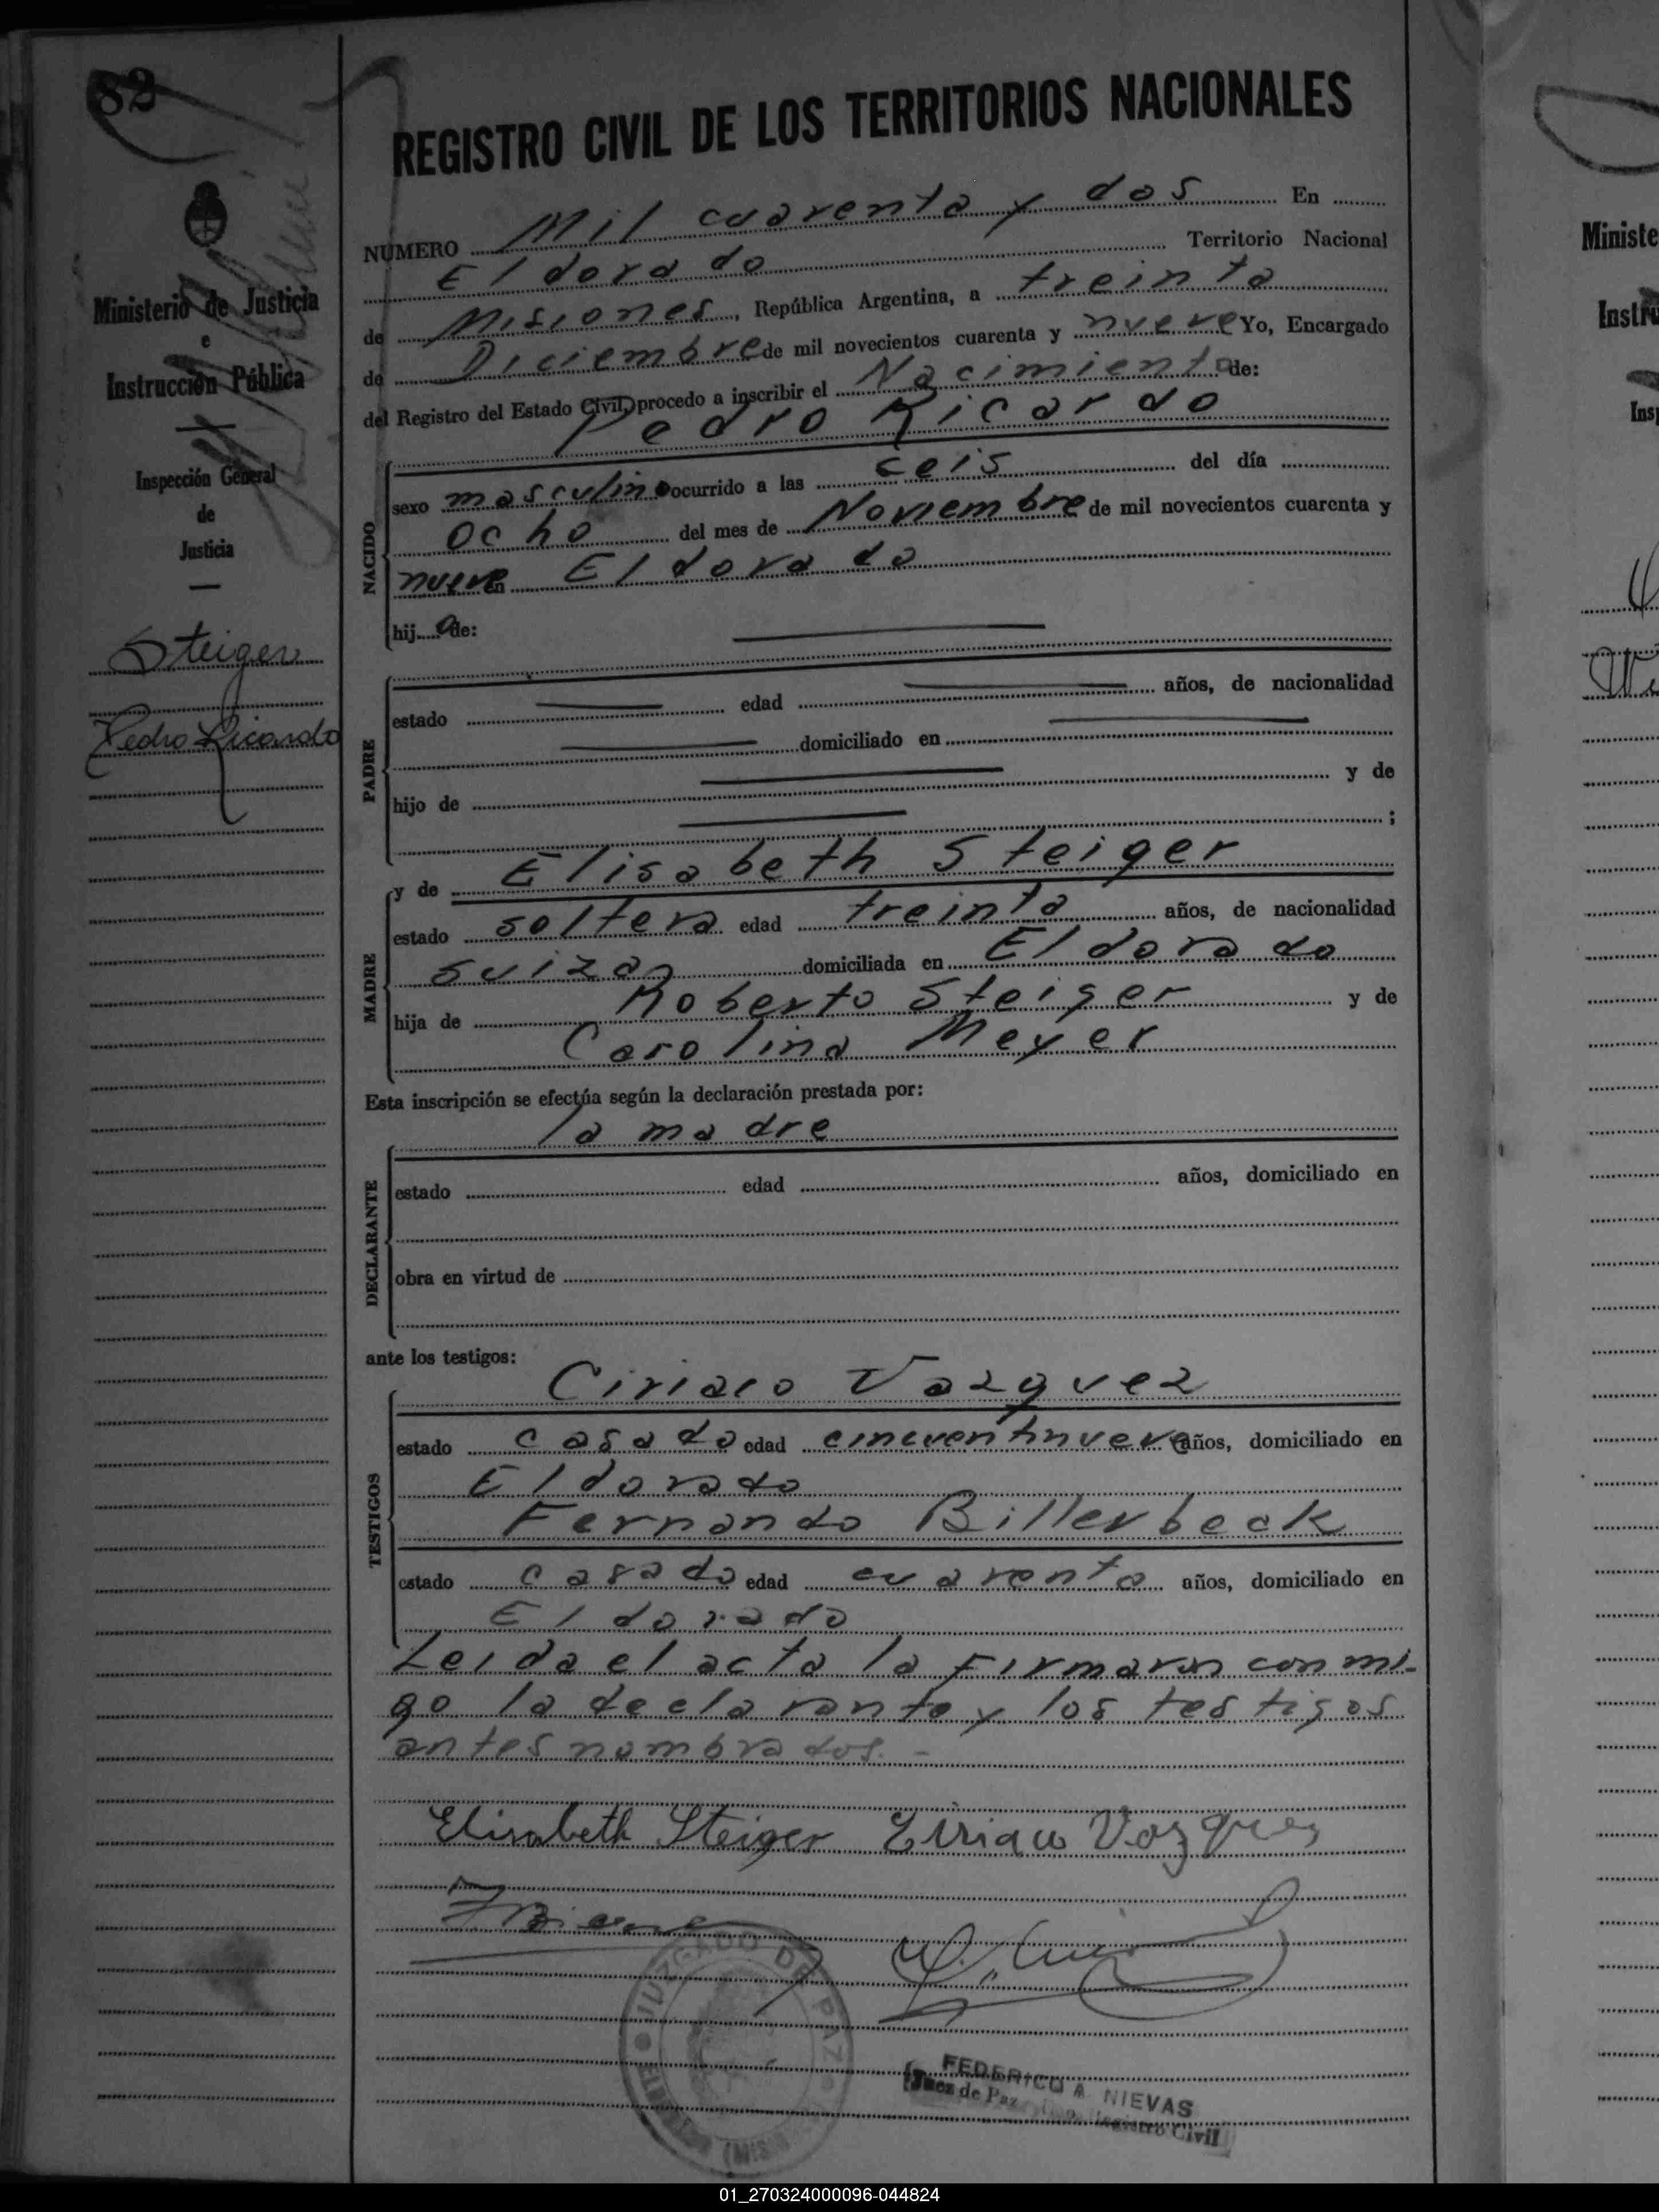 82
REGISTRO CIVIL DE LOS TERRITORIOS NACIONALES
NUMERO Mil cuarenta y dos En
Eldorado Territorio Nacional
de Misiones, República Argentina, a treinta
de Diciembre de mil novecientos cuarenta y nueve Yo, Encargado
del Registro del Estado Civil, procedo a inscribir el Nacimiento de:
Pedro Ricardo
NACIDO
sexo masculino ocurrido a las ceis del día
ocho del mes de Noviembre de mil novecientos cuarenta y
nueve en Eldorado
hijo de:
PADRE
estado edad años, de nacionalidad
domiciliado en
hijo de y de
;
MADRE
y de Elisabeth Steiger
estado soltera edad treinta años, de nacionalidad
suiza domiciliada en Eldorado
hija de Roberto Steiger y de
Carolina Meyer
Esta inscripción se efectúa según la declaración prestada por:
la madre
DECLARANTE
estado edad años, domiciliado en
obra en virtud de
ante los testigos:
Ciriaco Vazquez
TESTIGOS
estado casado edad cincuentinueve años, domiciliado en
Eldorado
Fernando Billerbeck
estado casado edad cuarenta años, domiciliado en
Eldorado
Leida el acta la firmaron con mi-
go la declarante y los testigos
antes nombrados. -
Elisabeth Steiger Ciriaco Vazquez
JUZGADO DE PAZ
FEDERICO A. NIEVAS
Juez de Paz Registro Civil
Ministerio de Justicia
e
Instrucción Pública
Inspección General
de
Justicia
Steiger
Pedro Ricardo
Ministe
Instru
Insp
01_270324000096-044824